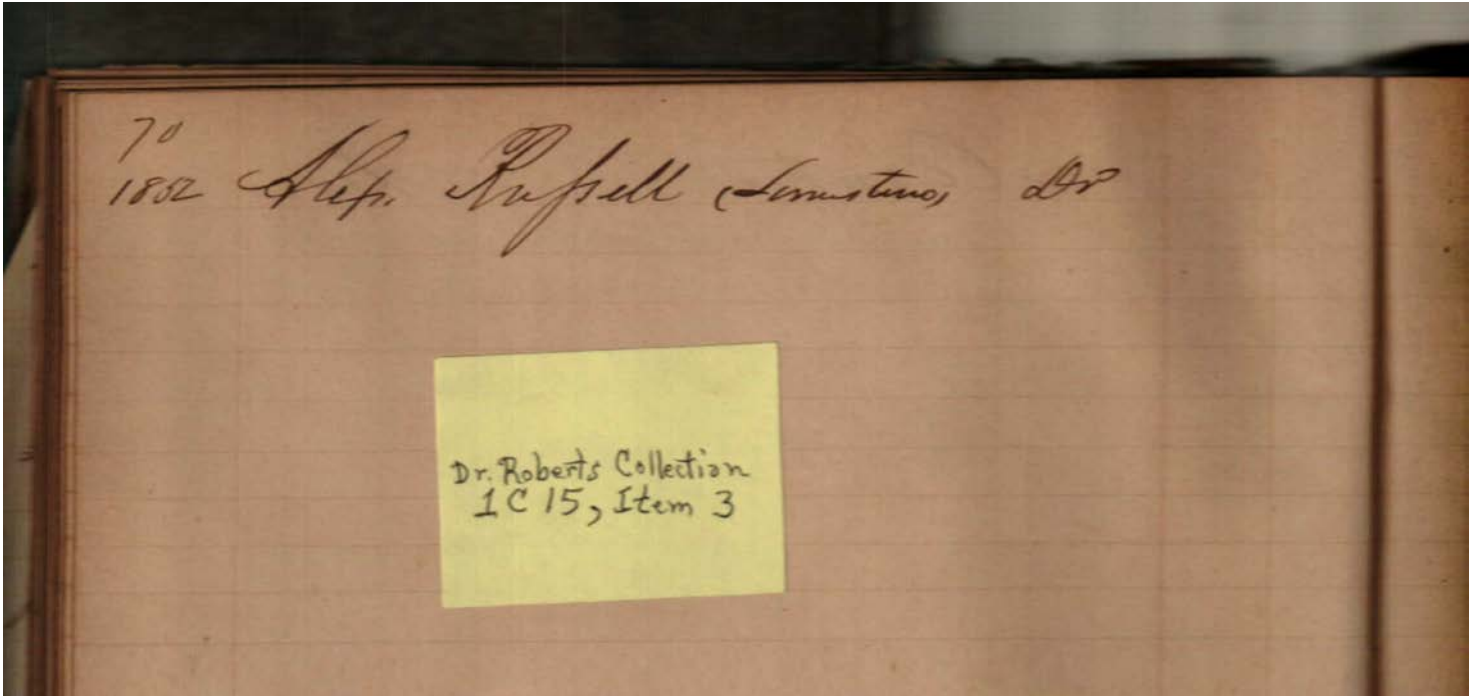 70
1852 Alex. Russell Dr
Dr. Roberts Collection
1C15, Item 3